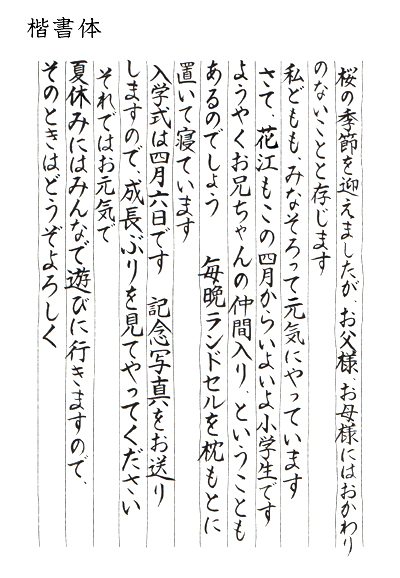 楷書体
桜の季節を迎えましたが、お父様、お母様にはおかわり
のないことと存じます
私どもも、みなそろって元気にやっています
さて、花江もこの四月からいよいよ小学生です
ようやくお兄ちゃんの仲間入り、ということも
あるのでしょう　毎晩ランドセルを枕もとに
置いて寝ています
入学式は四月六日です　記念写真をお送り
しますので、成長ぶりを見てやってください
それではお元気で
夏休みにはみんなで遊びに行きますので、
そのときはどうぞよろしく